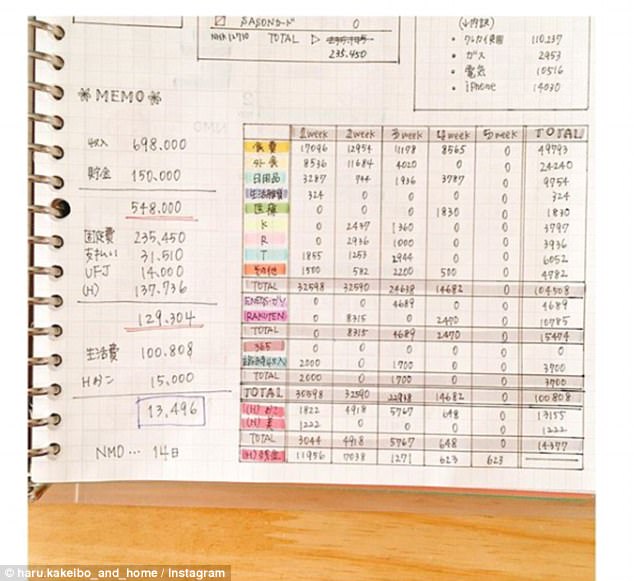 SAISONカード 0
NHK 12710 TOTAL ▷ 235.450
(↓内訳)
• クレカイ費用 110.237
• ガス 2953
• 電気 10516
• iPhone 14030
❀ MEMO ❀
収入 698.000
貯金 150.000
548.000
固定費 235,450
支払い 31.510
UFJ 14.000
(H) 137,736
129.304
生活費 100.808
Hかこ 15,000
13,496
NMD… 14日
1week 2week 3week 4week 5week TOTAL
食費 17096 12954 11178 8565 0 49793
外食 8536 11684 4020 0 0 24240
日用品 3287 744 1936 3787 0 9754
生活雑貨 324 0 0 0 0 324
医療 0 0 0 1830 0 1830
K 0 2437 1360 0 0 3797
R 0 2936 1000 0 0 3936
T 1855 1253 2944 0 0 6052
その他 1500 582 2200 500 0 4782
TOTAL 32598 32590 24638 14682 0 104508
ENEOS・ガソ 0 0 4689 0 0 4689
RAKUTEN 0 8315 0 2470 0 10785
TOTAL 0 8315 4689 2470 0 15474
365 0 0 0 0 0 0
2000 0 1700 0 0 3700
TOTAL 2000 0 1700 0 0 3700
TOTAL 30598 32590 22938 14682 0 100808
(H) かこ 1822 4918 5767 648 0 13155
(H) 美 1222 0 0 0 0 1222
TOTAL 3044 4918 5767 648 0 14377
(H) 残金 11956 7038 1271 623 623
© haru.kakeibo_and_home / Instagram